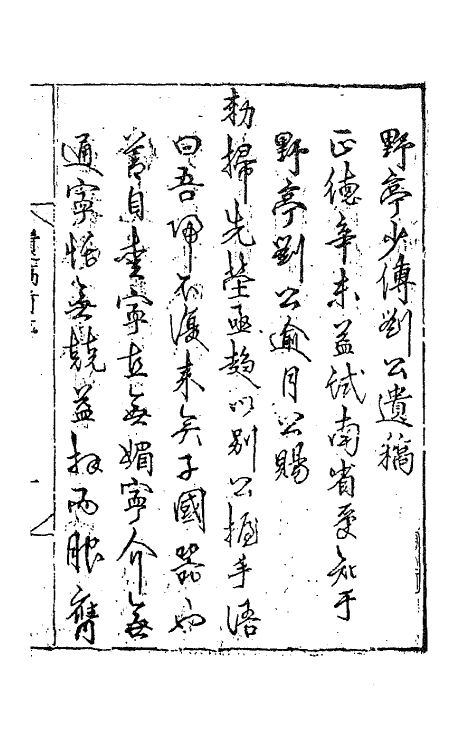 野亭少傅劉公遺稿
正德辛未益試南省受知于
野亭劉公逾月公賜
勅掃先塋亟趨以別公握手語
曰吾歸不復来矣子國器也
善自重寧直無媚寧介無
通寧恬無競益拜而服膺